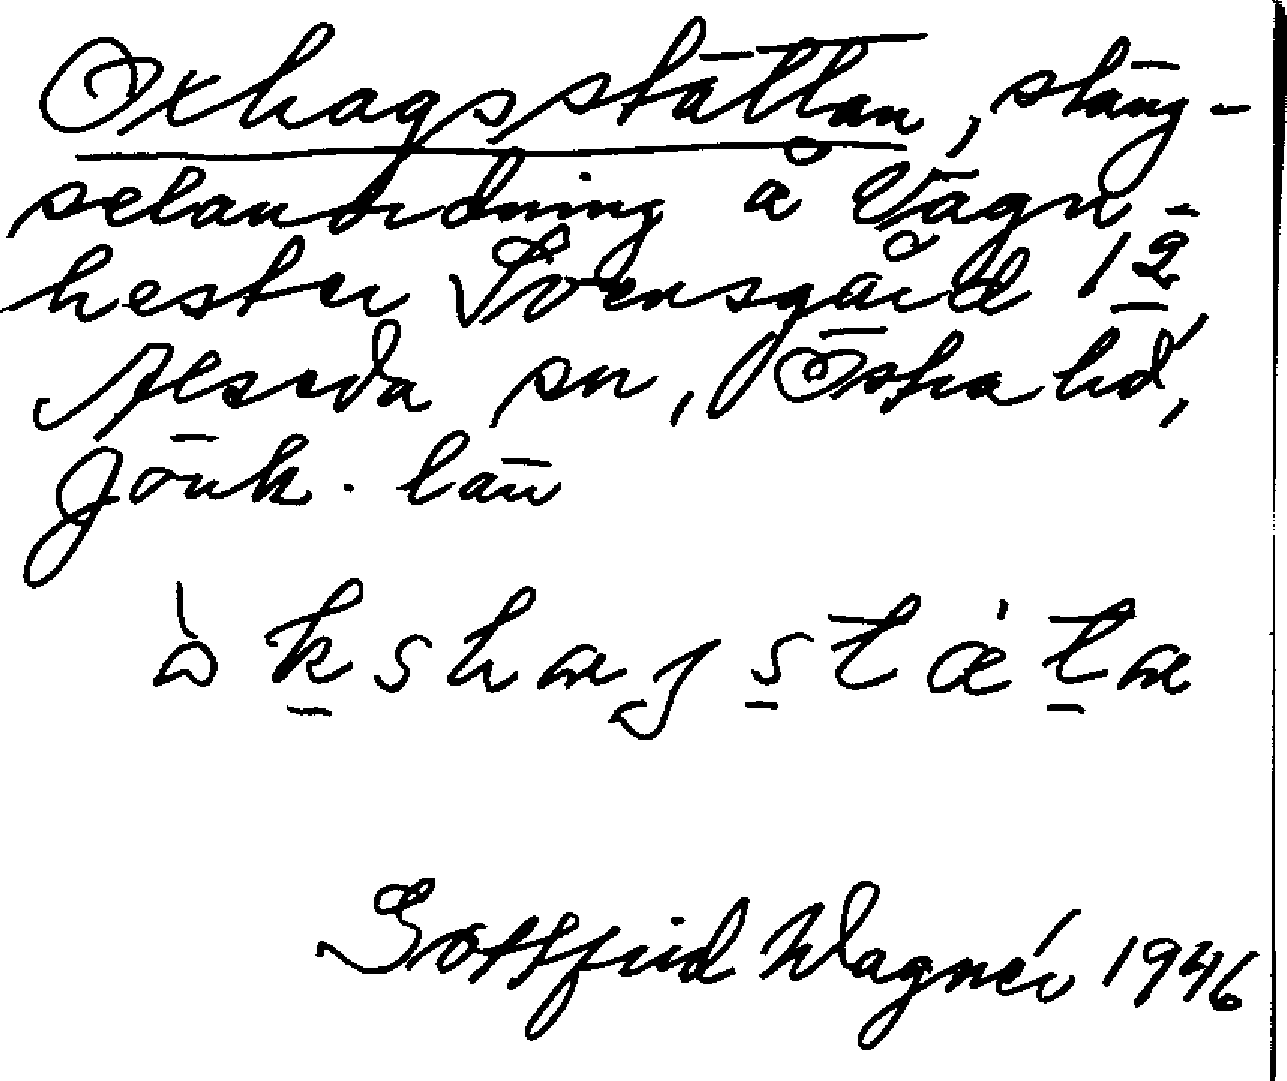 Oxhagsstättan, stäng-
selanordning å Vägn-
hester Svensgård 1²
Alseda sn, Östra hd,
Jönk. län
òkshagstǽta
Gottfrid Wagnér 1946